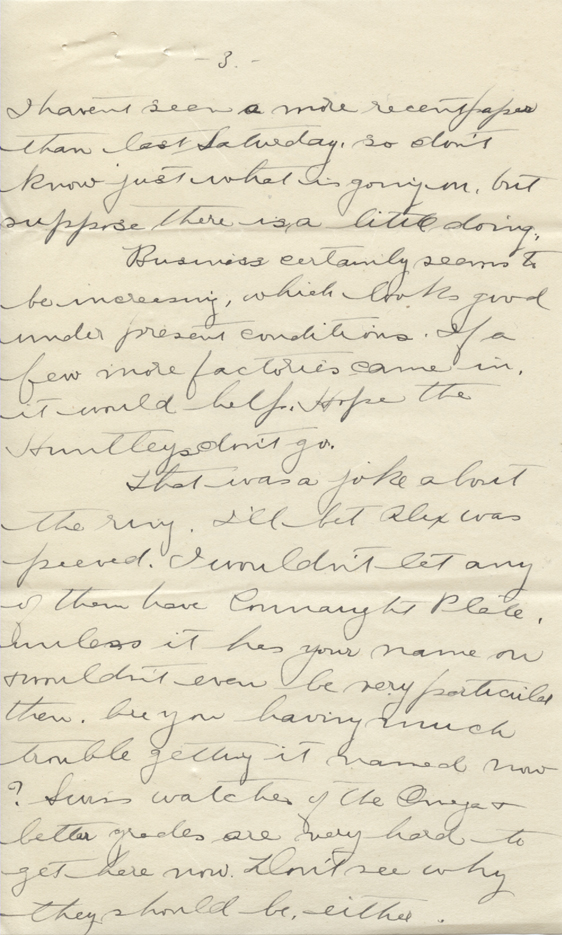 - 3. -
I havent seen a more recent paper
than last Saturday, so don't
know just what is going on, but
suppose there is a little doing.
Business certainly seems to
be increasing, which looks good
under present conditions. If a
few more factories came in,
it would help. Hope the
Huntleys don't go.
That was a joke about
the ring. I'll bet Alex was
peeved. I wouldn't let any
of them have Connaught Plate,
unless it has your name on
& wouldn't even be very particular
then. Are you having much
trouble getting it named now
? Swiss watches of the Omega &
better grades are very hard to
get here now. Don't see why
they should be, either.